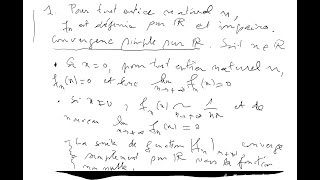 1. Pour tout entier naturel n,
fn est définie sur ℝ et impaire.
Convergence simple sur ℝ. Soit x ∈ ℝ
• Si x=0, pour tout entier naturel n,
fn(x)=0 et donc lim n→+∞ fn(x)=0
• Si x≠0, fn(x) ~ n→+∞ 1/nx et de
nouveau lim n→+∞ fn(x)=0
La suite de fonctions (fn) n converge
simplement sur ℝ vers la fonction
nulle.